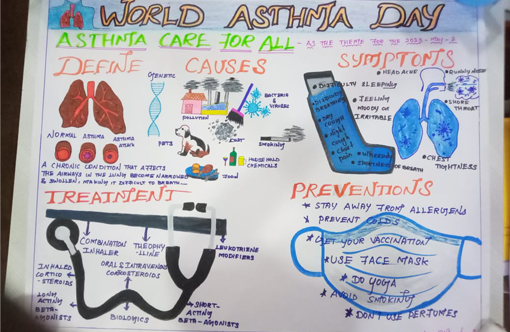 WORLD ASTHMA DAY
ASTHMA CARE FOR ALL - AS THE THEME FOR THE 2023-MAY-2
DEFINE
NORMAL
ASTHMA
ASTHMA
ATTACK
A CHRONIC CONDITION THAT AFFECTS
THE AIRWAYS IN THE LUNG BECOME NARROWED
& SWOLLEN, MAKING IT DIFFICULT TO BREATH
CAUSES
GENETIC
POLLUTION
BACTERIA
&
VIRUSES
PETS
DUST
SMOKING
FOOD
HOUSE HOLD
CHEMICALS
SYMPTOMS
HEADACHE
RUNNY NOSE
DIFFICULTY SLEEPING
FEELING
MOODY OR
IRRITABLE
DAY
COUGH
NIGHT
COUGH
CHEST
PAIN
WHEEZING
SHORTNESS
OF BREATH
SHORE
THROAT
CHEST
TIGHTNESS
TREATMENT
COMBINATION
INHALER
THEOPHY
-LLINE
LEUKOTRIENE
MODIFIERS
INHALED
CORTICO
-STEROIDS
ORAL & INTRAVENOUS
CORTICOSTEROIDS
LONG
ACTING
BETA-AGONISTS
BIOLOGICS
SHORT-
ACTING
BETA-AGONISTS
PREVENTIONS
* STAY AWAY FROM ALLERGENS
* PREVENT COLDS
* GET YOUR VACCINATION
* USE FACE MASK
* DO YOGA
* AVOID SMOKING
* DON'T USE PERFUMES